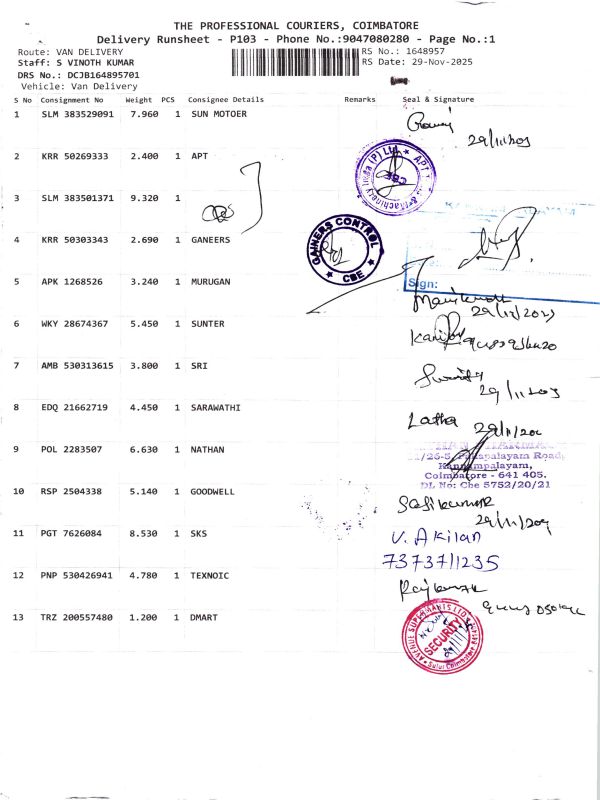 THE PROFESSIONAL COURIERS, COIMBATORE
Delivery Runsheet - P103 - Phone No.:9047080280 - Page No.:1
Route: VAN DELIVERY
RS No.: 1648957
Staff: S VINOTH KUMAR
RS Date: 29-Nov-2025
DRS No.: DCJB164895701
Vehicle: Van Delivery
S No Consignment No Weight PCS Consignee Details Remarks Seal & Signature
1 SLM 383529091 7.960 1 SUN MOTOER
2 KRR 50269333 2.400 1 APT
3 SLM 383501371 9.320 1
4 KRR 50303343 2.690 1 GANEERS
GAINERS CONTROL
CBE
Sign:
5 APK 1268526 3.240 1 MURUGAN
6 WKY 28674367 5.450 1 SUNTER
7 AMB 530313615 3.800 1 SRI
8 EDQ 21662719 4.450 1 SARAWATHI
Latha
9 POL 2283507 6.630 1 NATHAN
Road,
Kannampalayam,
Coimbatore - 641 405.
DL No: Cbe 5752/20/21
10 RSP 2504338 5.140 1 GOODWELL
Sasikumar
11 PGT 7626084 8.530 1 SKS
V. Akilan
7373711235
12 PNP 530426941 4.780 1 TEXNOIC
Rajkumar
13 TRZ 200557480 1.200 1 DMART
AVENUE SUPERMARTS LTD
SECURITY